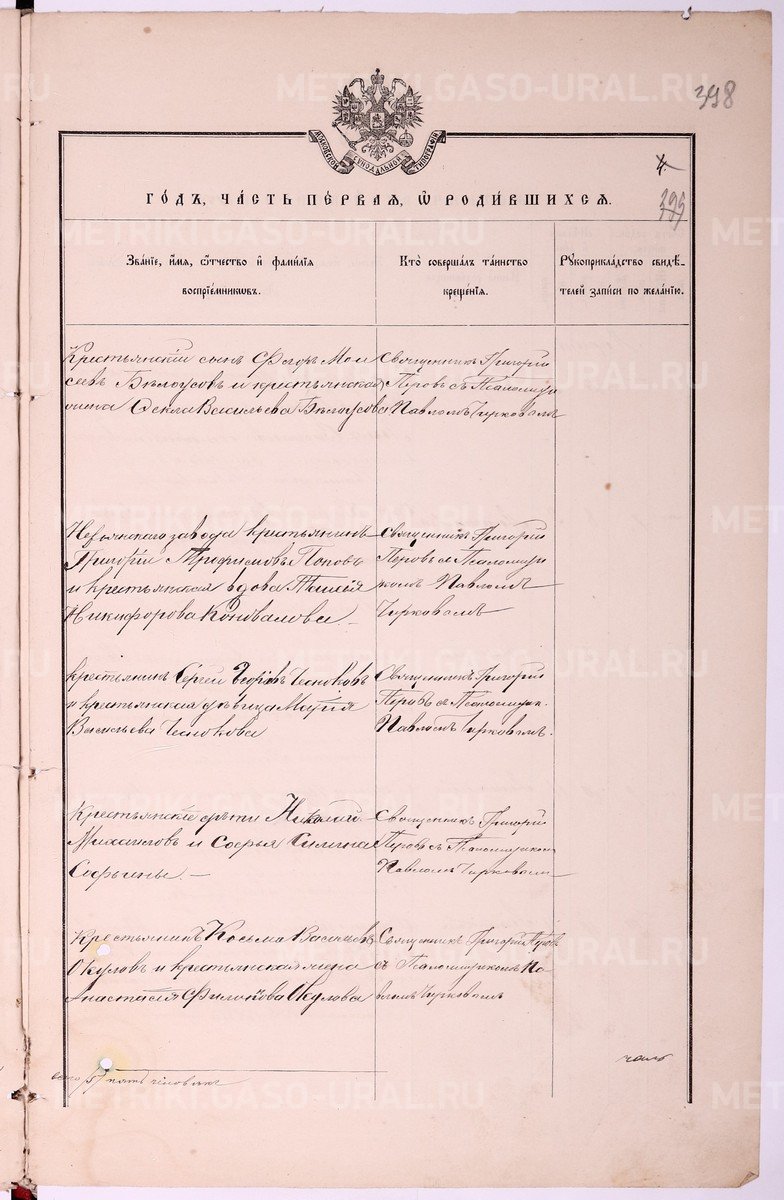 METRIKI.GASO-URAL.RU
398
МОСКОВСКОЙ СѴНОДАЛЬНОЙ ТИПОГРАФІИ
4.
399
ГО́ДЪ, ЧА́СТЬ ПЕ́РВАЯ, Ѽ РОДИ́ВШИХСЯ.
Зва́нїе, и́мя, ѻ́тчество и҆ фами́лїя
воспрїе́мниковъ.
Кто̀ соверша́лъ та́инство
креще́нїя.
Рꙋкоприкла́дство свидѣ́-
телей за́писи по жела́нїю.
Крестьянскій сынъ Ѳеодръ Мои
сеевъ Бѣлоусовъ и крестьянская
жена Ѳекла Васильева Бѣлоусова
Священникъ Григорій
Перовъ съ Псаломщи
Павломъ Чирковымъ
Невьянскаго завода крестьянинъ
Григорій Трифимовъ Поповъ
и крестьянская вдова
Никифорова Коновалова. —
Священникъ Григорій
Перовъ съ Псаломщи
комъ Павломъ
Чирковымъ
Крестьянинъ Сергей Чесноковъ
и крестьянская дѣвица Марія
Васильева Чеснокова
Священникъ Григорій
Перовъ съ Псаломщик.
Павломъ Чирковымъ.
Крестьянскіе дѣти Николай
Михаиловъ и Софья Силина
Софьины. —
Священникъ Григорій
Перовъ съ Псаломщиком
Павломъ Чирковым
Крестьянинъ Косьма Васильевъ
Окуловъ и крестьянская жена
Анастасія Филипова Окулова
Священникъ Григорій Перов
съ Псаломщикомъ Па
вломъ Чирковымъ
всего /5/ пять человѣкъ